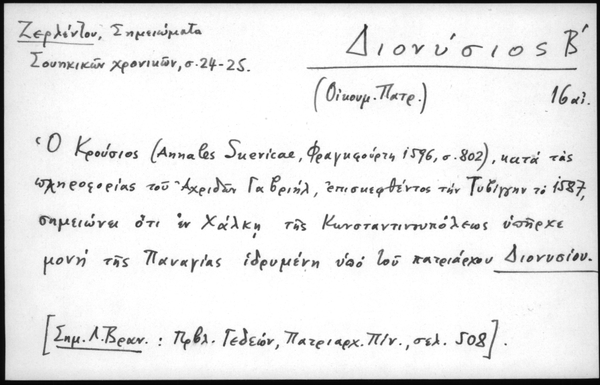 Ζερλέντου, Σημειώματα
Σουηκικῶν χρονικῶν, σ. 24-25.
Διονύσιος Β΄
(Οἰκουμ. Πατρ.)
16 αἰ.
Ὁ Κρούσιος (Annales Suevicae, Φραγκφούρτη 1596, σ. 802), κατά τάς
πληροφορίας τοῦ Ἀχριδῶν Γαβριήλ, ἐπισκεφθέντος τήν Τυβίγγην τό 1587,
σημειώνει ὅτι ἐν Χάλκῃ τῆς Κωνσταντινουπόλεως ὑπῆρχε
μονή τῆς Παναγίας ἱδρυμένη ὑπό τοῦ πατριάρχου Διονυσίου.
[Σημ. Λ. Βραν. : Πρβλ. Γεδεών, Πατριαρχ. Πίν., σελ. 508].